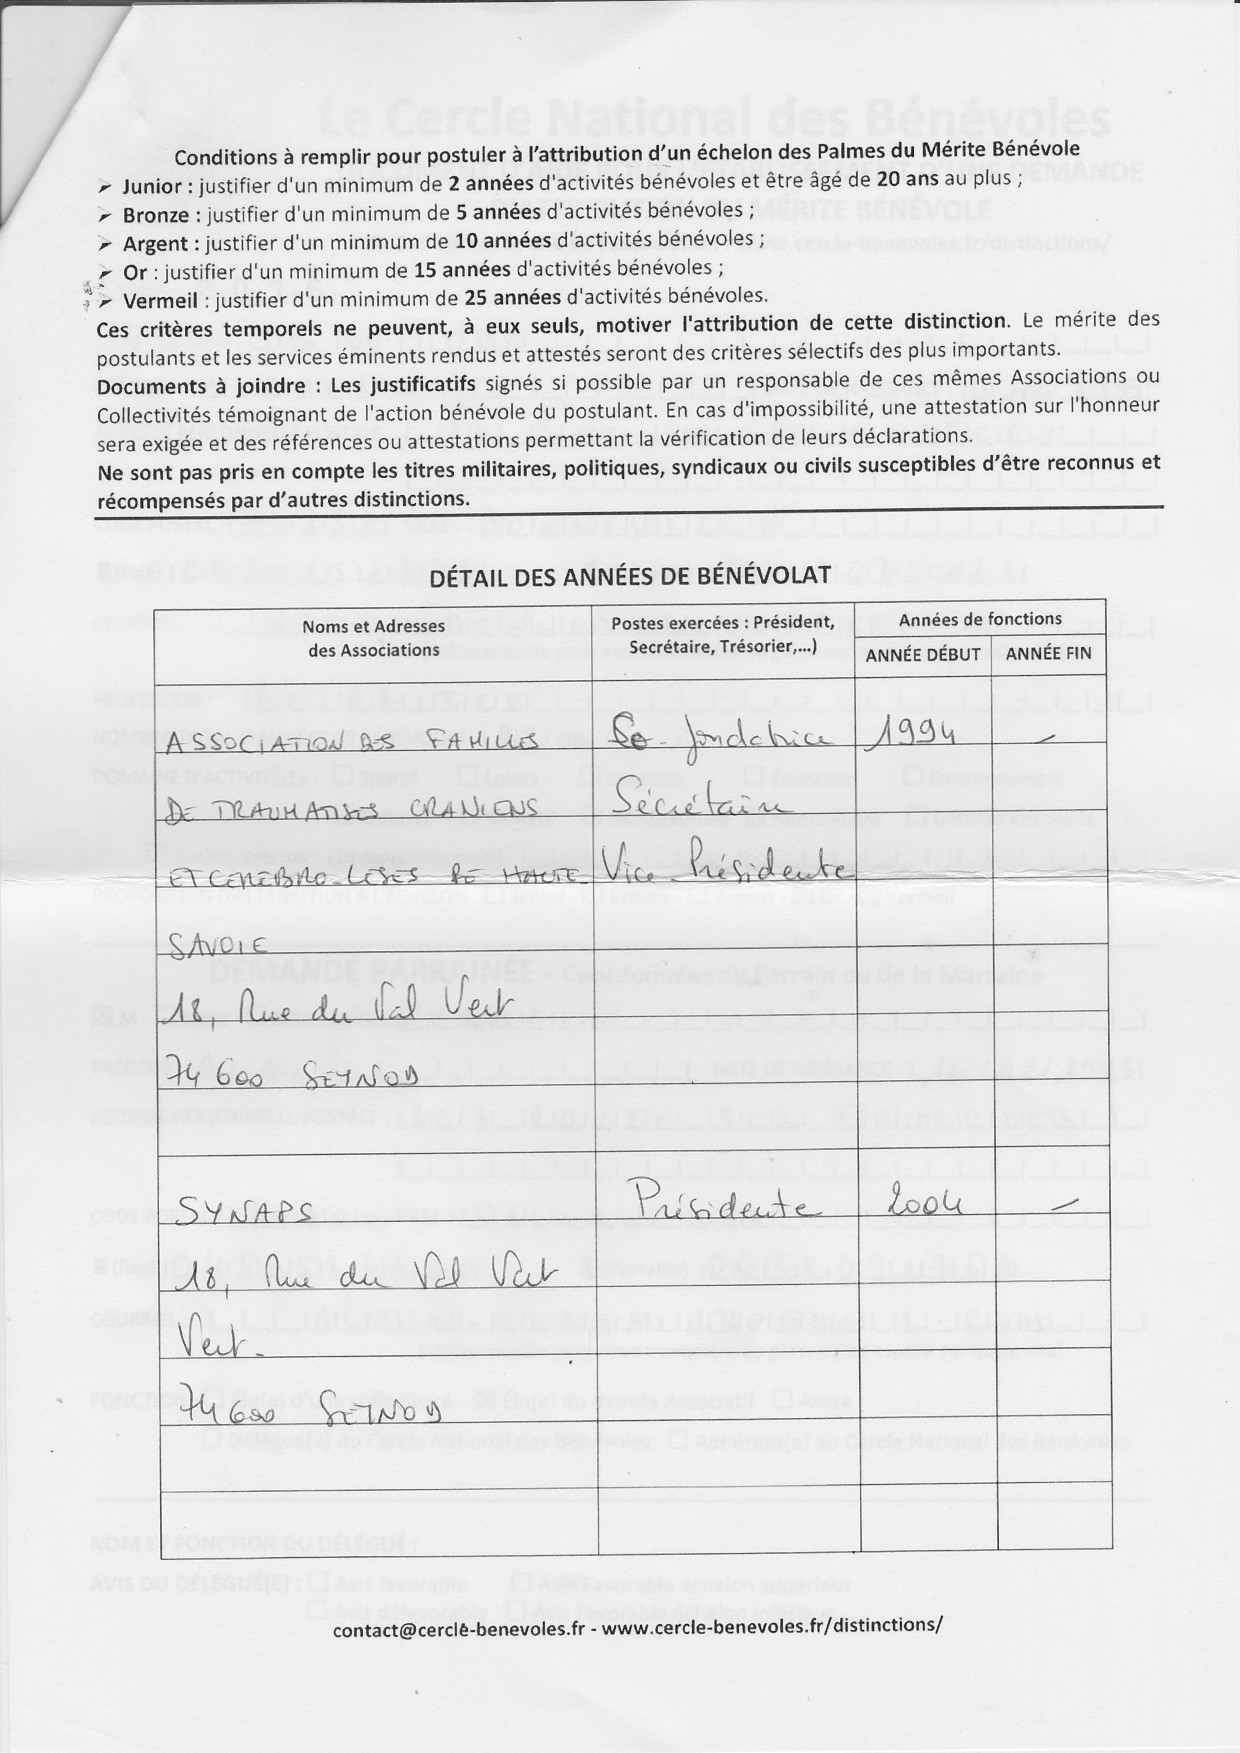 Conditions à remplir pour postuler à l'attribution d'un échelon des Palmes du Mérite Bénévole
➢ Junior : justifier d'un minimum de 2 années d'activités bénévoles et être âgé de 20 ans au plus ;
➢ Bronze : justifier d'un minimum de 5 années d'activités bénévoles ;
➢ Argent : justifier d'un minimum de 10 années d'activités bénévoles ;
➢ Or : justifier d'un minimum de 15 années d'activités bénévoles ;
➢ Vermeil : justifier d'un minimum de 25 années d'activités bénévoles.
Ces critères temporels ne peuvent, à eux seuls, motiver l'attribution de cette distinction. Le mérite des
postulants et les services éminents rendus et attestés seront des critères sélectifs des plus importants.
Documents à joindre : Les justificatifs signés si possible par un responsable de ces mêmes Associations ou
Collectivités témoignant de l'action bénévole du postulant. En cas d'impossibilité, une attestation sur l'honneur
sera exigée et des références ou attestations permettant la vérification de leurs déclarations.
Ne sont pas pris en compte les titres militaires, politiques, syndicaux ou civils susceptibles d'être reconnus et
récompensés par d'autres distinctions.
DÉTAIL DES ANNÉES DE BÉNÉVOLAT
Noms et Adresses
des Associations
Postes exercées : Président,
Secrétaire, Trésorier,...)
Années de fonctions
ANNÉE DÉBUT ANNÉE FIN
ASSOCIATION DES FAMILLES Co-fondatrice 1994 -
DE TRAUMATISES CRANIENS Sécrétaire
ET CEREBRO-LESES DE HAUTE Vice-Présidente
SAVOIE
18, Rue du Val Vert
74 600 SEYNOD
SYNAPS Présidente 2004 -
18, Rue du Val Vert
Vert-
74600 SEYNOD
contact@cercle-benevoles.fr - www.cercle-benevoles.fr/distinctions/